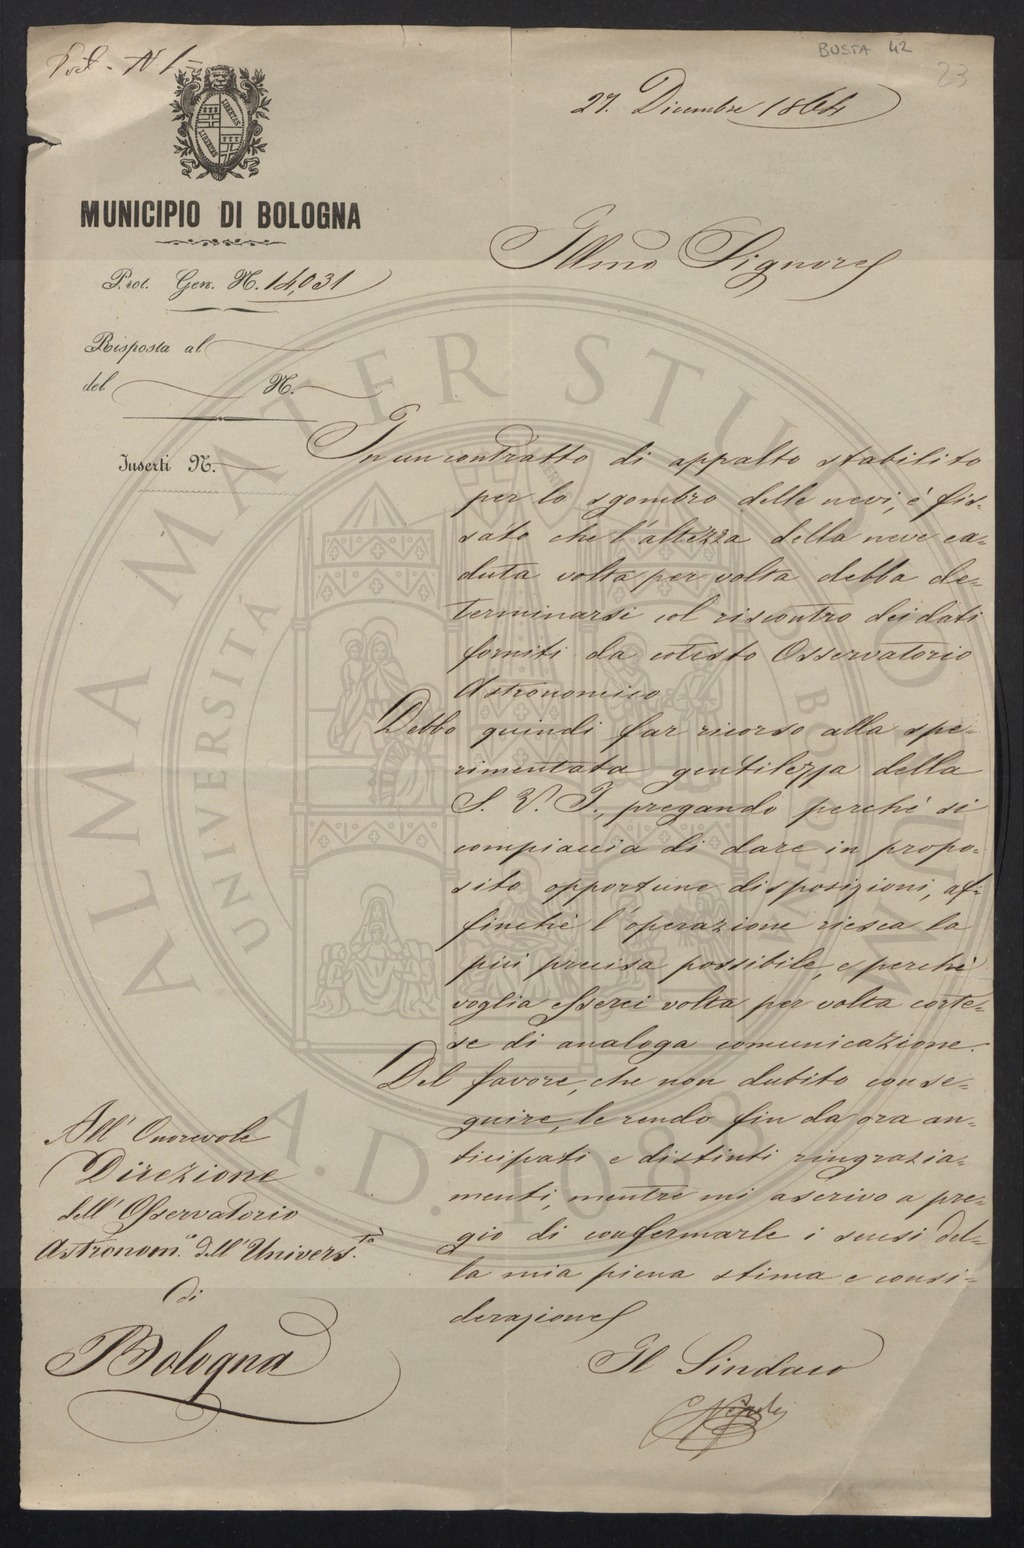 BUSTA 42
23
Prot. N 1
27. Dicembre 1864
LIBERTAS
LIBERTAS
MUNICIPIO DI BOLOGNA
Prot. Gen. N. 14,031
Risposta al
del N.
Inserti N.
Illmo Signore
In un contratto di appalto stabilito
per lo sgombro delle nevi, è fis-
sato che l'altezza della neve ca-
duta volta per volta debba de-
terminarsi col riscontro dei dati
forniti da cotesto Osservatorio
Astronomico
Debbo quindi far ricorso alla spe-
rimentata gentilezza della
S. V. I., pregando perchè si
compiaccia di dare in propo-
sito opportune disposizioni, af-
finchè l'operazione riesca la
più precisa possibile, e perchè
voglia esserci volta per volta corte-
se di analoga comunicazione.
Del favore, che non dubito conse-
guire, le rendo fin da ora an-
ticipati e distinti ringrazia-
menti, mentre mi ascrivo a pre-
gio di confermarle i sensi del-
la mia piena stima e consi-
derazione
Il Sindaco
All' Onorevole
Direzione
dell' Osservatorio
Astronom.o dell' Univers.tà
di
Bologna
ALMA MATER STUDIORUM
UNIVERSITÀ DI BOLOGNA
A.D. 1088